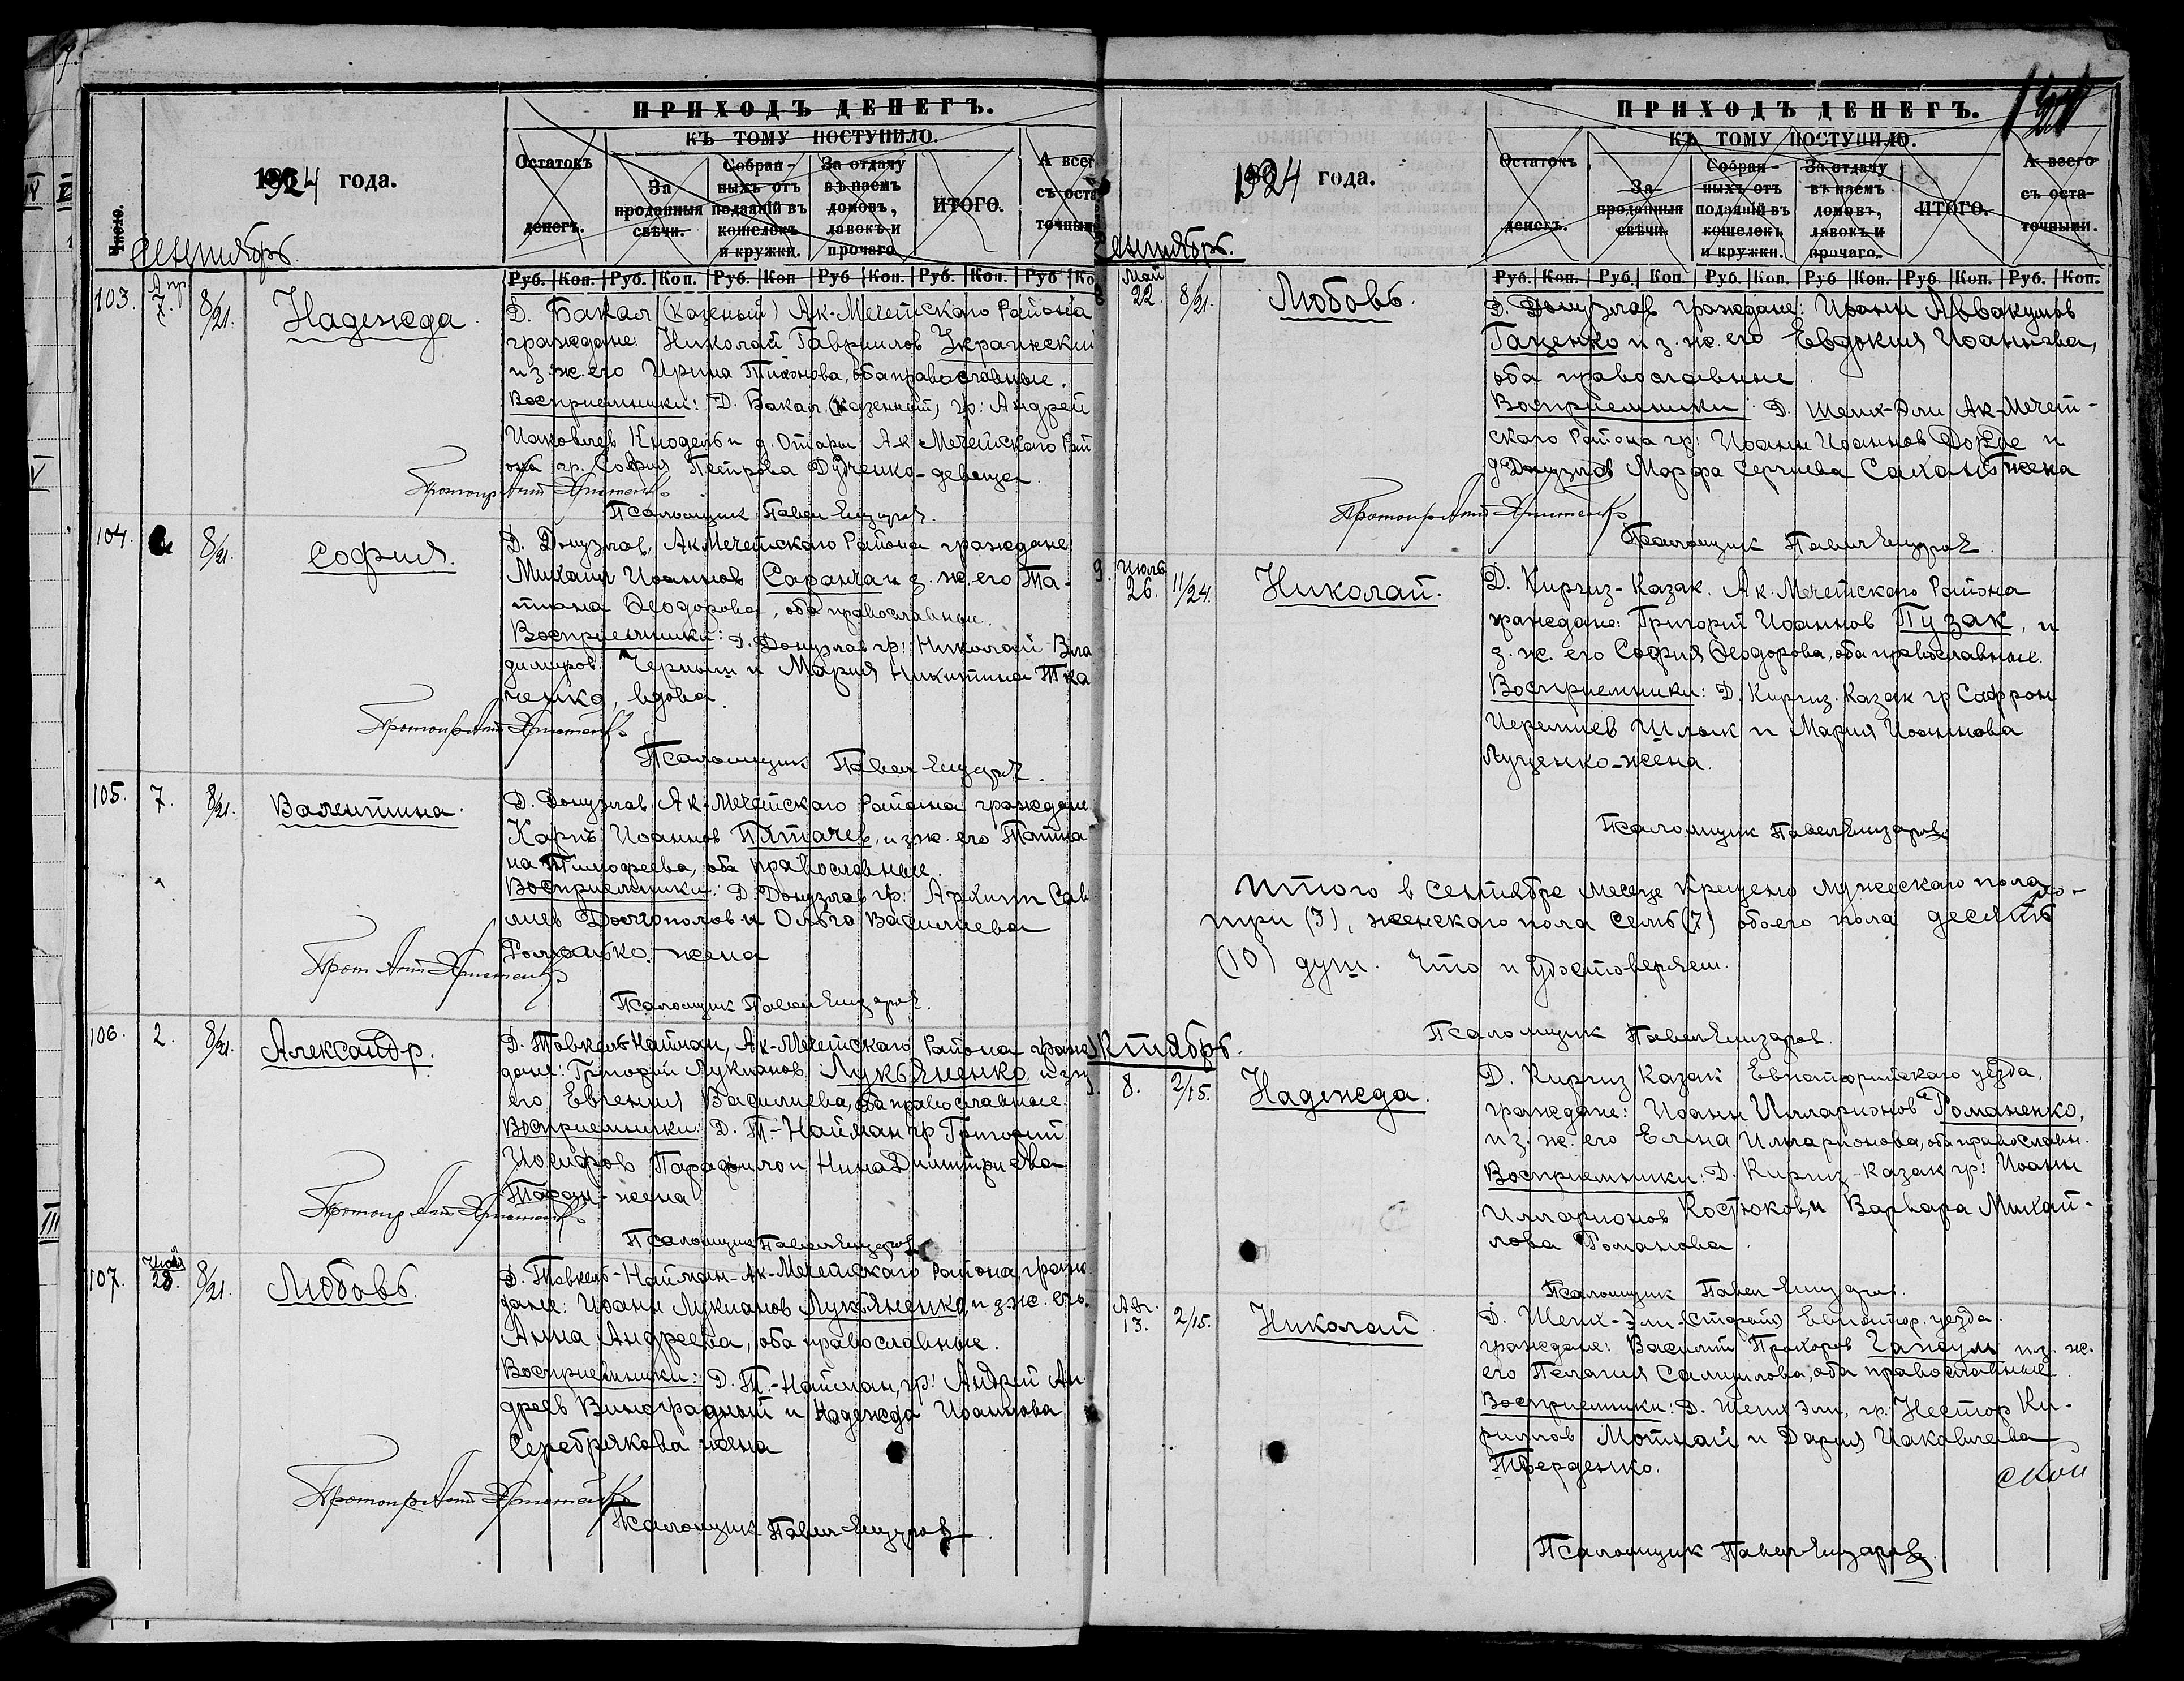 ПРИХОДЪ ДЕНЕГЪ.
КЪ ТОМУ ПОСТУПИЛО.
Остатокъ денегъ.
За проданныя свѣчи.
Собран-ныхъ отъ подаяній въ кошелекъ и кружки.
За отдачу въ наемъ домовъ, лавокъ и прочаго
ИТОГО.
А всего съ оста точными
Число.
1924 года.
Сентябрь.
Руб. Коп. Руб. Коп. Руб. Коп Руб Коп. Руб. Коп. Руб Ко
103. Апр 7. 8/21. Надежда.
Д. Бакал (казенный) Ак-Мечетскаго Района
граждане: Николай Гавриилов Украинский
и з. ж. его Ирина Тихонова, оба православные.
Восприемники: Д. Бакал (казенный) гр: Андрей
Иаковлев Кнодель и д. Отары Ак Мечетскаго Рай
она гр. София Петрова Дудченко-девица.
Псаломщик Павел Елизаров.
104. 8/21. София.
Д. Донузлав, Ак Мечетскаго Района граждане
Михаил Иоаннов Саранча и з. ж. его Та-
тиана Феодорова, оба православные.
Восприемники: Д. Донузлав гр: Николай Вла
димиров Черныш и Мария Никитина Тка
ченко, вдова.
Псаломщик Павел Елизаров.
105. 7. 8/21. Валентина.
Д. Донузлав. Ак-Мечетскаго Района граждане
Карп Иоаннов Пятачев, и з ж. его Татиа
на Тимофеева, оба православные.
Восприемники: Д. Донузлав гр: Архип Сав
Долгополов и Ольга Василиева
жена
Псаломщик Павел Елизаров.
106. 2. 8/21. Александр.
Д. Товкель-Найман, Ак-Мечетскаго Района граж
дане: Григорий Лукианов Лукьяненко и з ж
его Евгения Василиева, оба православные.
Восприемники: Д. Т.-Найман гр Григорий
Иосифов Парафило и Нина Димитриева
Таран - жена
Псаломщик Павел Елизаров
107. 28. 8/21. Любовь.
Д. Товкель-Найман-Ак-Мечетскаго Района, граж
дане: Иоанн Лукианов Лукьяненко, и з ж. его.
Анна Андреева, оба православные.
Восприемники: Д. Т.-Найман, гр: Андрей Ан
дреев Виноградный и Надежда Иоаннова
Серебрякова жена
Псаломщик Павел Елизаров
ПРИХОДЪ ДЕНЕГЪ.
КЪ ТОМУ ПОСТУПИЛО.
Остатокъ денегъ.
За проданныя свѣчи
Собран-ныхъ отъ подаяній въ кошелекъ и кружки.
За отдачу въ наемъ домовъ, лавокъ и прочаго.
ИТОГО.
А всего съ оста-точными.
1924 года.
ентябрь.
Руб. Коп. Руб. Коп Руб. Коп. Руб Коп. Руб Коп. Руб. Коп.
Май 22. 8/21. Любовь.
Д. Донузлав граждане: Иоанн Аввакумов
Гаценко и з. ж. его Евдокия Иоаннова,
оба православные.
Восприемники: Д. Шеих-Эли Ак-Мечет-
скаго Района гр: Иоанн Иоаннов и
д. Донузлав Марфа Сергиева жена
Псаломщик Павел Елизаров
9. Июль 26. 11/24. Николай.
Д. Киргиз-Казак. Ак. Мечетскаго Района
граждане: Григорий Иоаннов Пузак, и
з. ж. его София Феодорова, оба православные.
Восприемники: Д. Киргиз. Казак гр Сафрон
Иеремиев Шлык и Мария Иоаннова
Луценко-жена.
Псаломщик Павел Елизаров
Итого в сентябре месяце крещено мужескаго пола
три (3), женскаго пола семь (7) обоего пола десять
(10) душ. Что и удостоверяем.
Псаломщик Павел Елизаров.
ктябрь.
8. 2/15. Надежда.
Д. Киргиз Казак Евпаторийскаго уезда,
граждане: Иоанн Илларионов Романенко,
и з. ж. его Елена Илларионова, оба православн.
Восприемники: Д. Киргиз-Казак гр: Иоанн
Илларионов Костюков, и Варвара Михай-
лова Романова.
Псаломщик Павел Елизаров.
Авг. 13. 2/15. Николай
Д. Шеих-Эли-(старый) Евпатор. уезда.
граждане: Василий Прохоров и з. ж.
его Пелагия Самуилова, оба православные.
Восприемники: Д. Шеих Эли, гр: Нестор Ки-
риллов Мотнай и Дария Иаковлева
Тверденко.
Псаломщик Павел Елизаров